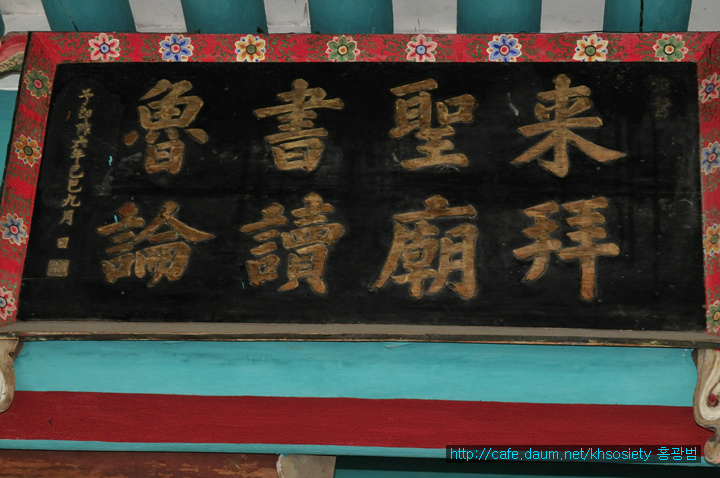 来拜
聖廟
書讀
魯論
予即阼六年己巳九月 日
http://cafe.daum.net/khsosiety 홍광범